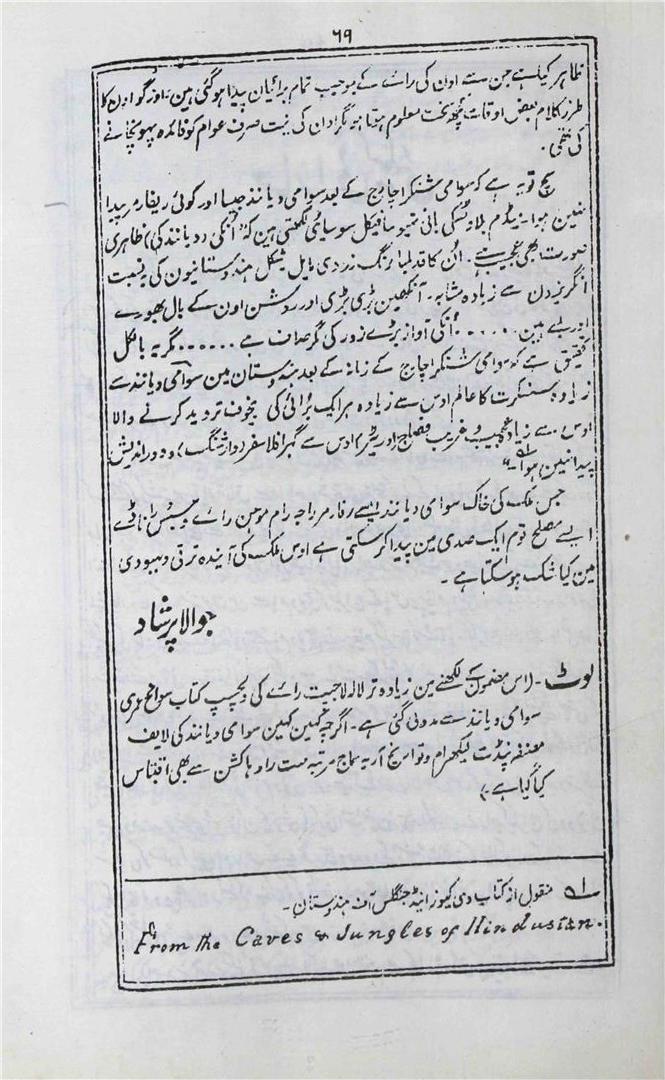 ۶۹
ظاہر کیا ہے جن سے اون کی رائے کے بموجب تمام برائیان پیدا ہو گئی ہین۔ اور گو اون کا
طرز کلام بعض اوقات کچھ سخت معلوم ہوتا ہو مگر اون کی نیت صرف عوام کو فائدہ پہونچانے
کی تھی۔
سچ تو یہ ہے کہ سوامی شنکراچارج کے بعد سوامی دیانند جیسا اور کوئی ریفارمر پیدا
نہین ہوا۔ میڈم بلاوٹسکی بانی تھیوسافیکل سوسائٹی لکھتی ہین کہ "اُنکی (دیانند کی) ظاہری
صورت بھی عجیب ہے۔ اُن کا قد لمبا رنگ زردی مایل شکل ہندوستانیون کی بہ نسبت
انگریزون سے زیادہ مشابہ۔ آنکھین بڑی بڑی اور روشن اون کے بال بھورے
اور لمبے ہین ...... اُنکی آواز بڑے زور کی مگر صاف ہے ...... مگر یہ بالکل
تحقیق ہے کہ سوامی شنکراچارج کے زمانہ کے بعد ہندوستان مین سوامی دیانند سے
زیادہ سنسکرت کا عالم اوس سے زیادہ ہر ایک بُرائی کی بیخوف تردید کرنے والا
اوس سے زیادہ عجیب و غریب فصاح (اوریٹر) اوس سے گہرا فلاسفر و دور اندیش
پیدا نہین ہوا" ؎۱
جس ملک کی خاک سوامی دیانند ایسے رفارمر راجہ رام موہن رائے و جسٹس راناڈے
ایسے مصلح قوم ایک صدی مین پیدا کر سکتی ہے اوس ملک کی آیندہ ترقی و بہبودی
مین کیا شک ہو سکتا ہے۔
جوالا پرشاد
نوٹ۔ (اس مضمون کے لکھنے مین زیادہ تر لالہ لاجپت رائے کی دلچسپ کتاب سوانح عمری
سوامی دیانند سے مدد لی گئی ہے۔ اگرچہ کہین کہین سوامی دیانند کی لایف
مصنفہ پنڈت لیکھرام و تواریخ آریہ سماج مرتبہ مسٹر رادہا کشن سے بھی اقتباس
کیا گیا ہے۔)
؎۱ منقول از کتاب دی کیوز اینڈ جنگلس اف ہندوستان۔
From the Caves & Jungles of Hindustan.